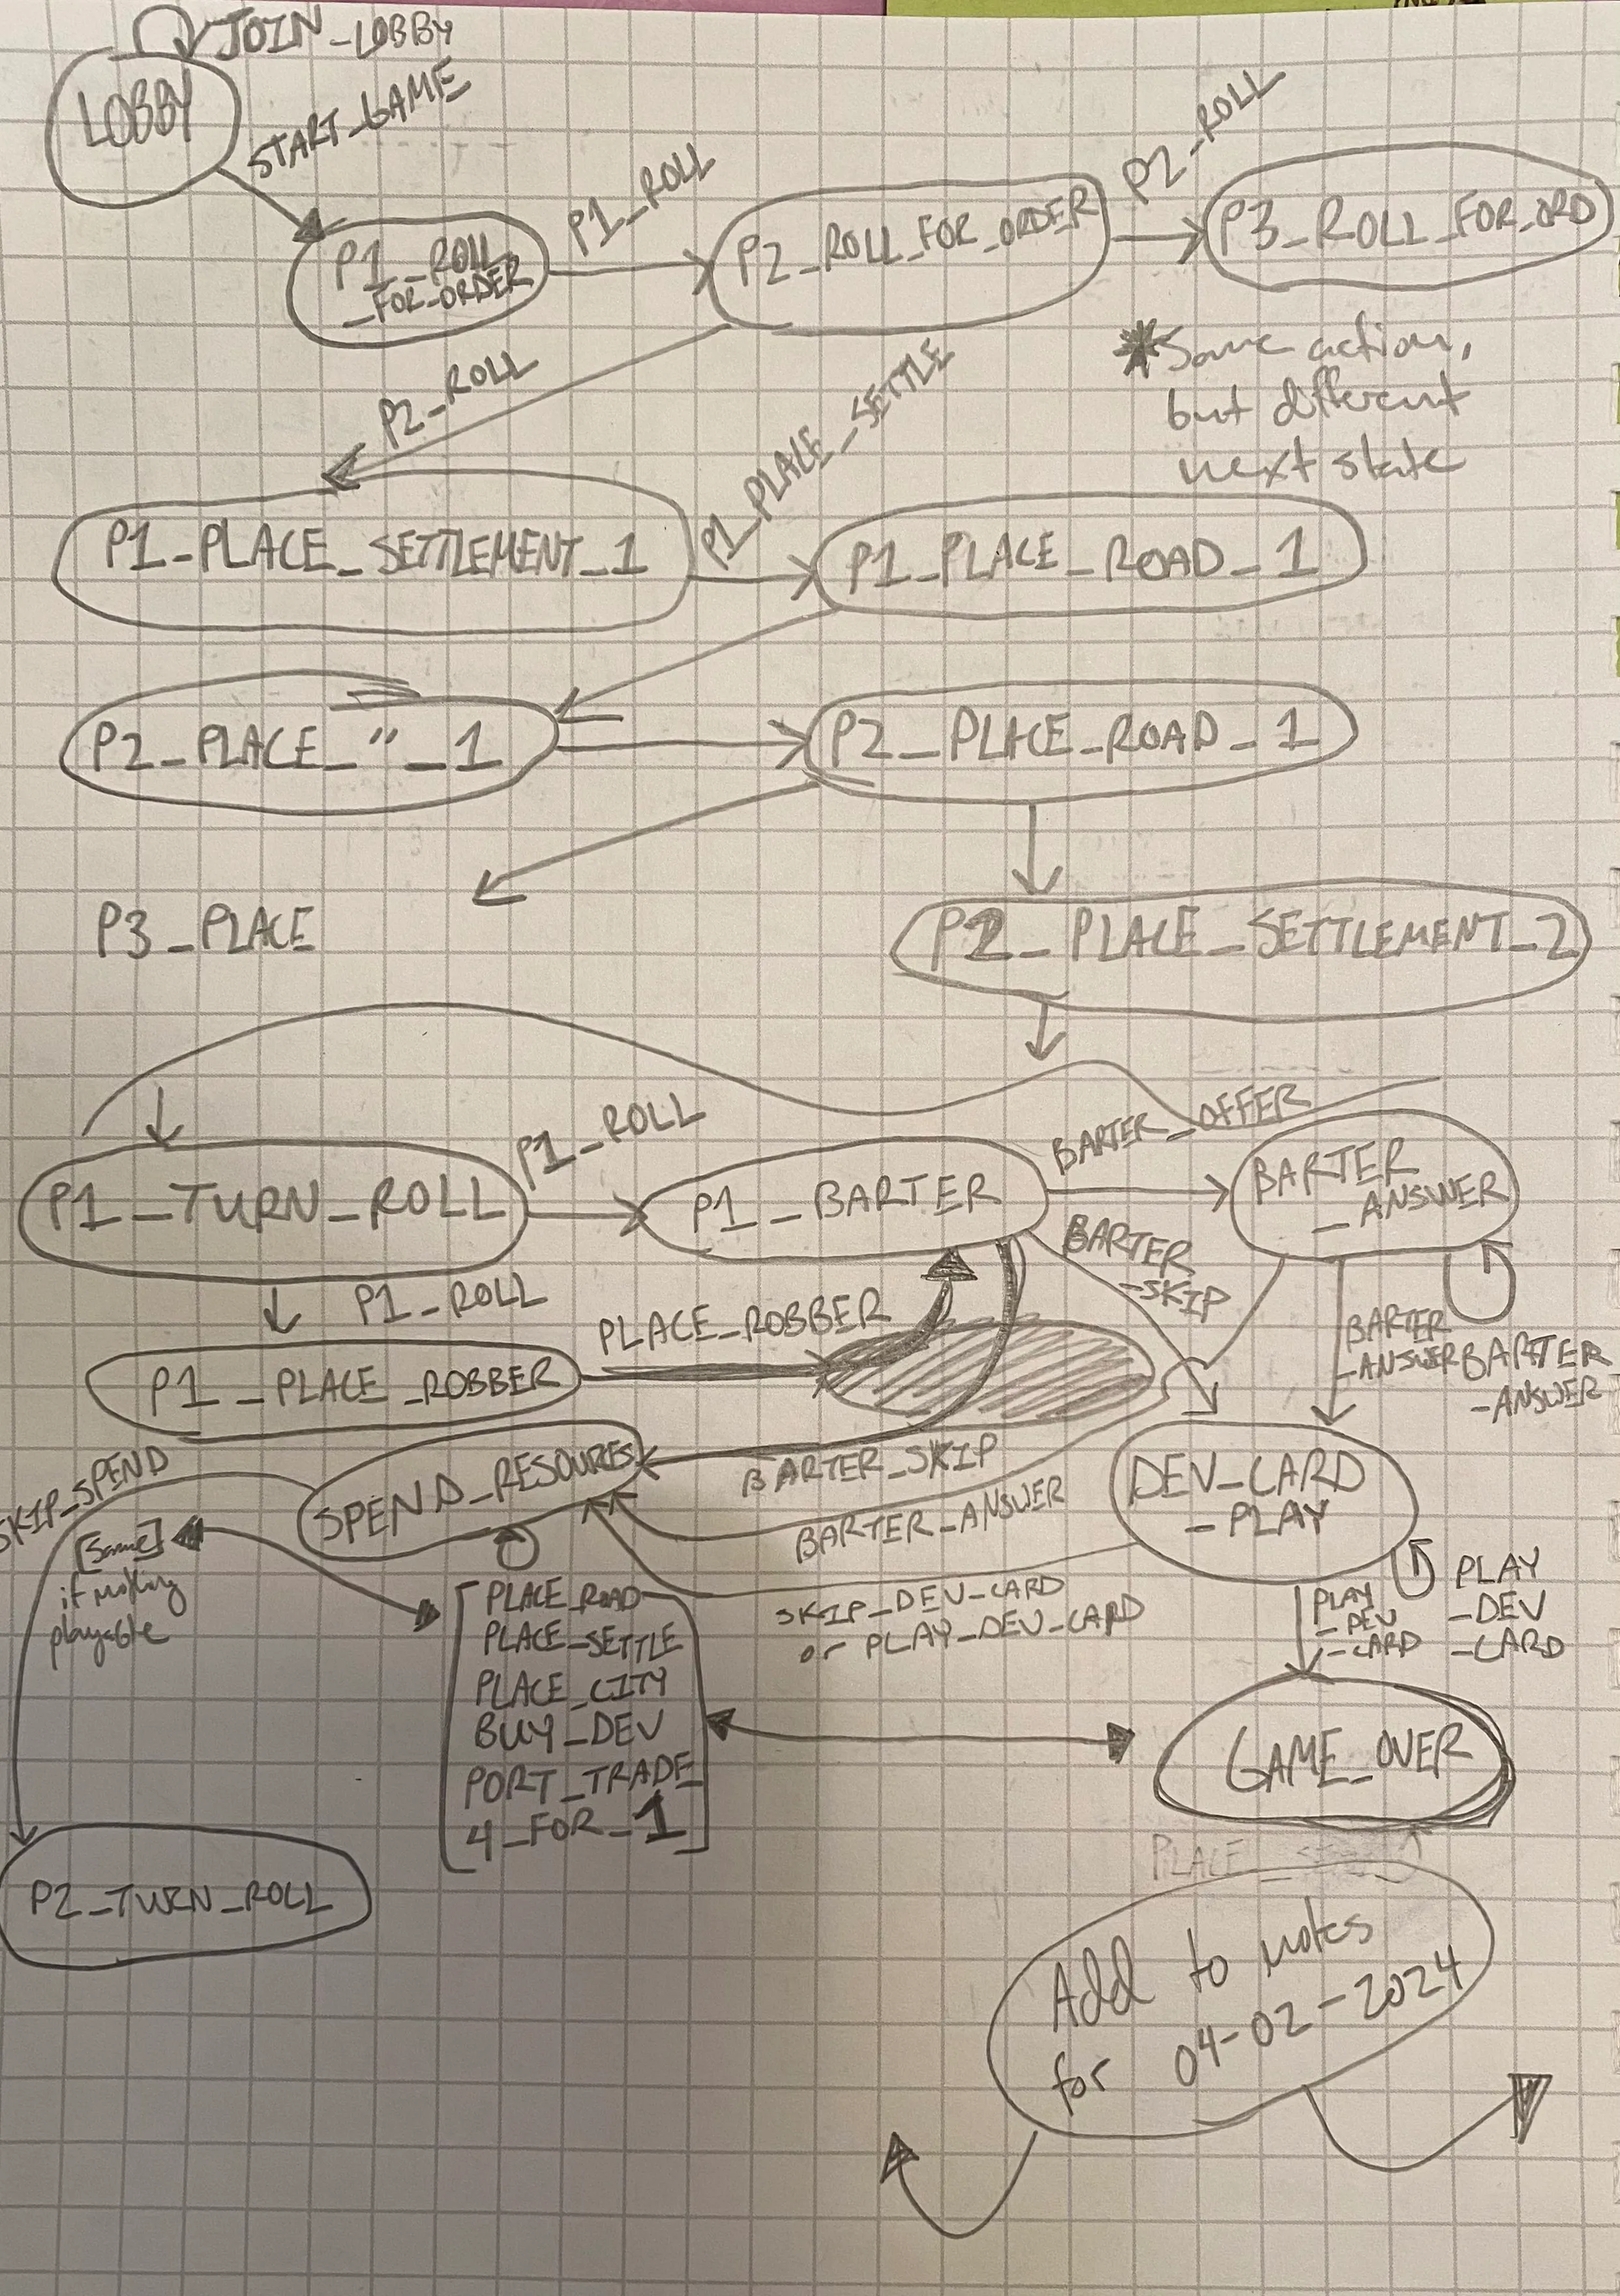 JOIN_LOBBY
LOBBY
START_GAME
P1_ROLL
_FOR_ORDER
P1_ROLL
P2_ROLL_FOR_ORDER
P2_ROLL
P3_ROLL_FOR_ORD
* Same action,
but different
next state
P2_ROLL
P1_PLACE_SETTLEMENT_1
P1_PLACE_SETTLE
P1_PLACE_ROAD_1
P2_PLACE_"_1
P2_PLACE_ROAD_1
P3_PLACE
P2_PLACE_SETTLEMENT_2
P1_TURN_ROLL
P1_ROLL
P1_BARTER
BARTER_OFFER
BARTER
_ANSWER
BARTER
_SKIP
P1_ROLL
PLACE_ROBBER
P1_PLACE_ROBBER
BARTER
_ANSWER
BARTER
_ANSWER
SKIP_SPEND
SPEND_RESOURCES
BARTER_SKIP
BARTER_ANSWER
DEV_CARD
_PLAY
[same]
if nothing
playable
SKIP_DEV_CARD
or PLAY_DEV_CARD
PLAY
_DEV
_CARD
PLAY
_DEV
_CARD
PLACE_ROAD
PLACE_SETTLE
PLACE_CITY
BUY_DEV
PORT_TRADE
4_FOR_1
GAME_OVER
P2_TURN_ROLL
PLACE_
Add to notes
for 04-02-2024